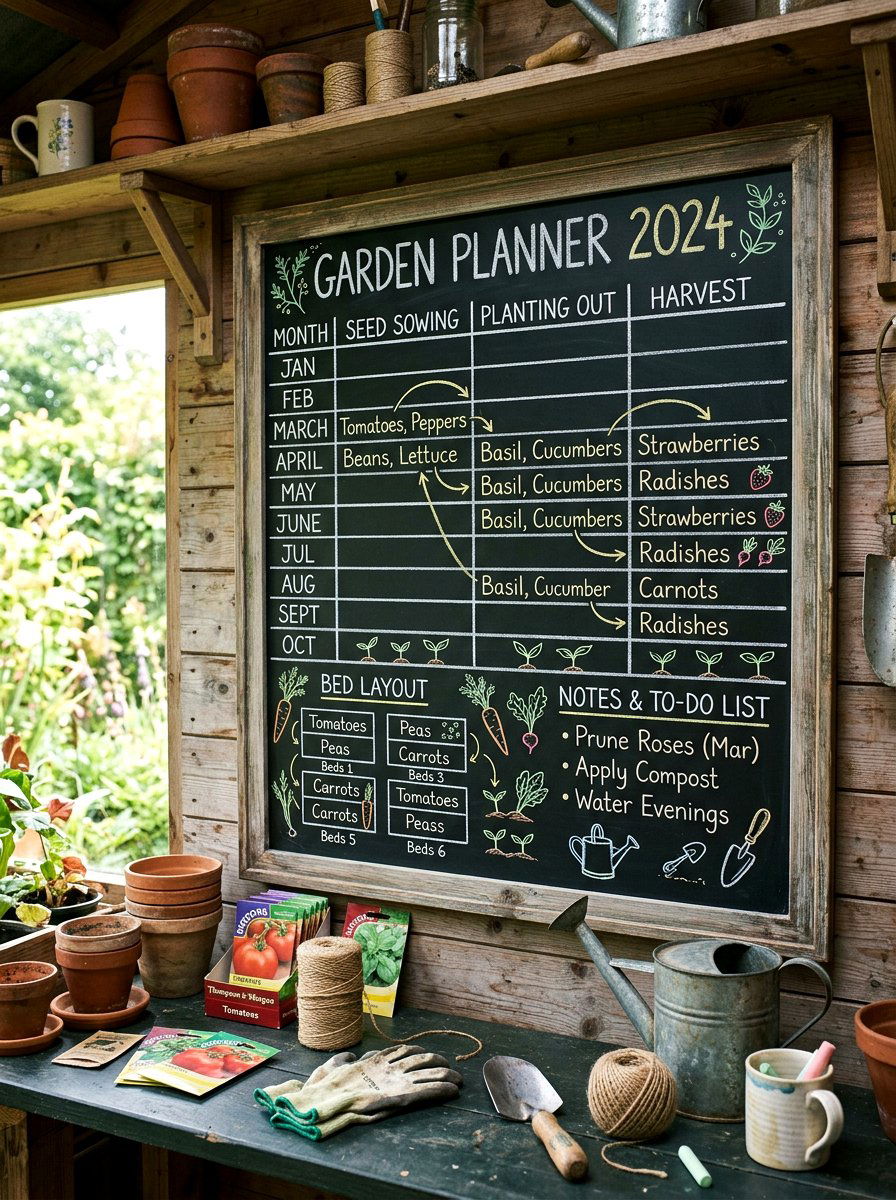 GARDEN PLANNER 2024
MONTH SEED SOWING PLANTING OUT HARVEST
JAN
FEB
MARCH Tomatoes, Peppers
APRIL Beans, Lettuce Basil, Cucumbers Strawberries
MAY Basil, Cucumbers Radishes
JUNE Basil, Cucumbers Strawberries
JUL Radishes
AUG Basil, Cucumber Carnots
SEPT Radishes
OCT
BED LAYOUT
Tomatoes
Peas
Beds 1
Carrots
Carrots
Beds 5
Peas
Carrots
Beds 3
Tomatoes
Peass
Beds 6
NOTES & TO-DO LIST
• Prune Roses (Mar)
• Apply Compost
• Water Evenings
Tomatoes